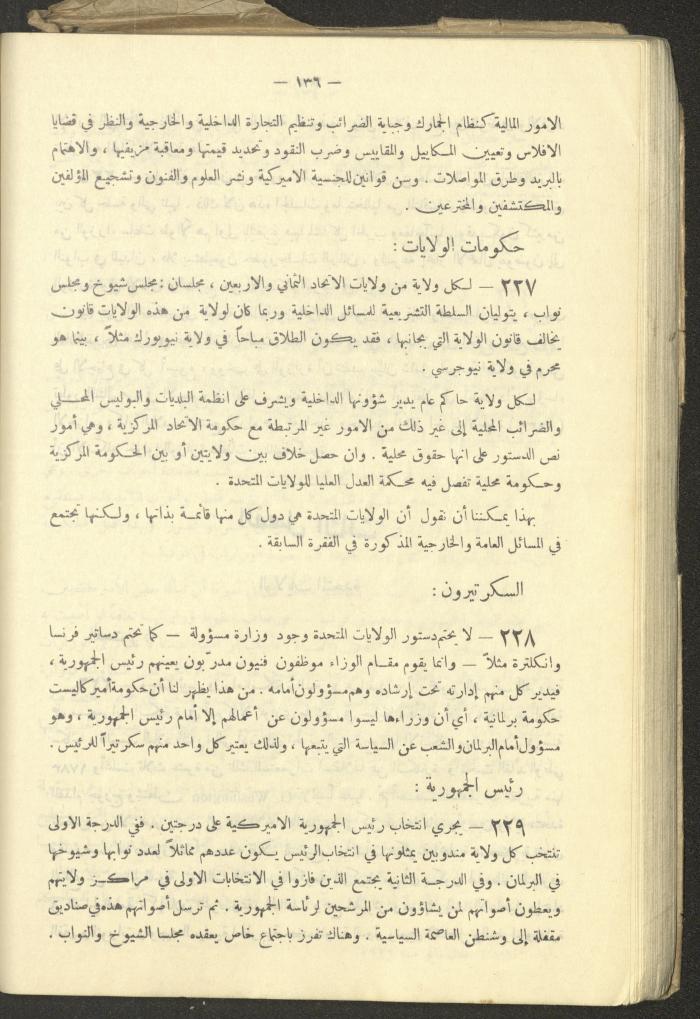 — ١٣٦ —
الامور المالية كنظام الجمارك وجباية الضرائب وتنظيم التجارة الداخلية والخارجية والنظر في قضايا
الافلاس وتعيين المكاييل والمقاييس وضرب النقود وتحديد قيمتها ومعاقبة مزيفيها ، والاهتمام
بالبريد وطرق المواصلات . وسن قوانين للجنسية الاميركية ونشر العلوم والفنون وتشجيع المؤلفين
والمكتشفين والمخترعين .
حكومات الولايات :
٢٢٧ — لكل ولاية من ولايات الاتحاد الثماني والاربعين ، مجلسان : مجلس شيوخ ومجلس
نواب ، يتوليان السلطة التشريعية للمسائل الداخلية وربما كان لولاية من هذه الولايات قانون
يخالف قانون الولاية التي بجانبها ، فقد يكون الطلاق مباحاً في ولاية نيويورك مثلاً ، بينما هو
محرم في ولاية نيوجرسي .
لكل ولاية حاكم عام يدير شؤونها الداخلية ويشرف على انظمة البلديات والبوليس المحلي
والضرائب المحلية إلى غير ذلك من الامور غير المرتبطة مع حكومة الاتحاد المركزية ، وهي أمور
نص الدستور على انها حقوق محلية . وان حصل خلاف بين ولايتين أو بين الحكومة المركزية
وحكومة محلية تفصل فيه محكمة العدل العليا للولايات المتحدة .
بهذا يمكننا أن نقول أن الولايات المتحدة هي دول كل منها قائمة بذاتها ، ولكنها تجتمع
في المسائل العامة والخارجية المذكورة في الفقرة السابقة .
السكرتيرون :
٢٢٨ — لا يحتم دستور الولايات المتحدة وجود وزارة مسؤولة — كما تحتم دساتير فرنسا
وانكلترة مثلاً — وانما يقوم مقام الوزاء موظفون فنيون مدربون يعينهم رئيس الجمهورية ،
فيدير كل منهم إدارته تحت إرشاده وهم مسؤولون أمامه . من هذا يظهر لنا أن حكومة أميركا ليست
حكومة برلمانية ، أي أن وزراءها ليسوا مسؤولون عن أعمالهم إلا أمام رئيس الجمهورية ، وهو
مسؤول أمام البرلمان والشعب عن السياسة التي يتبعها ، ولذلك يعتبر كل واحد منهم سكرتيراً للرئيس .
رئيس الجمهورية :
٢٢٩ — يجري انتخاب رئيس الجمهورية الاميركية على درجتين . ففي الدرجة الاولى
تنتخب كل ولاية مندوبين يمثلونها في انتخاب الرئيس يكون عددهم مماثلاً لعدد نوابها وشيوخها
في البرلمان . وفي الدرجة الثانية يجتمع الذين فازوا في الانتخابات الاولى في مراكز ولايتهم
ويعطون أصواتهم لمن يشاؤون من المرشحين لرئاسة الجمهورية . ثم ترسل أصواتهم هذه في صناديق
مقفلة إلى وشنطن العاصمة السياسية . وهناك تفرز باجتماع خاص يعقده مجلسا الشيوخ والنواب .